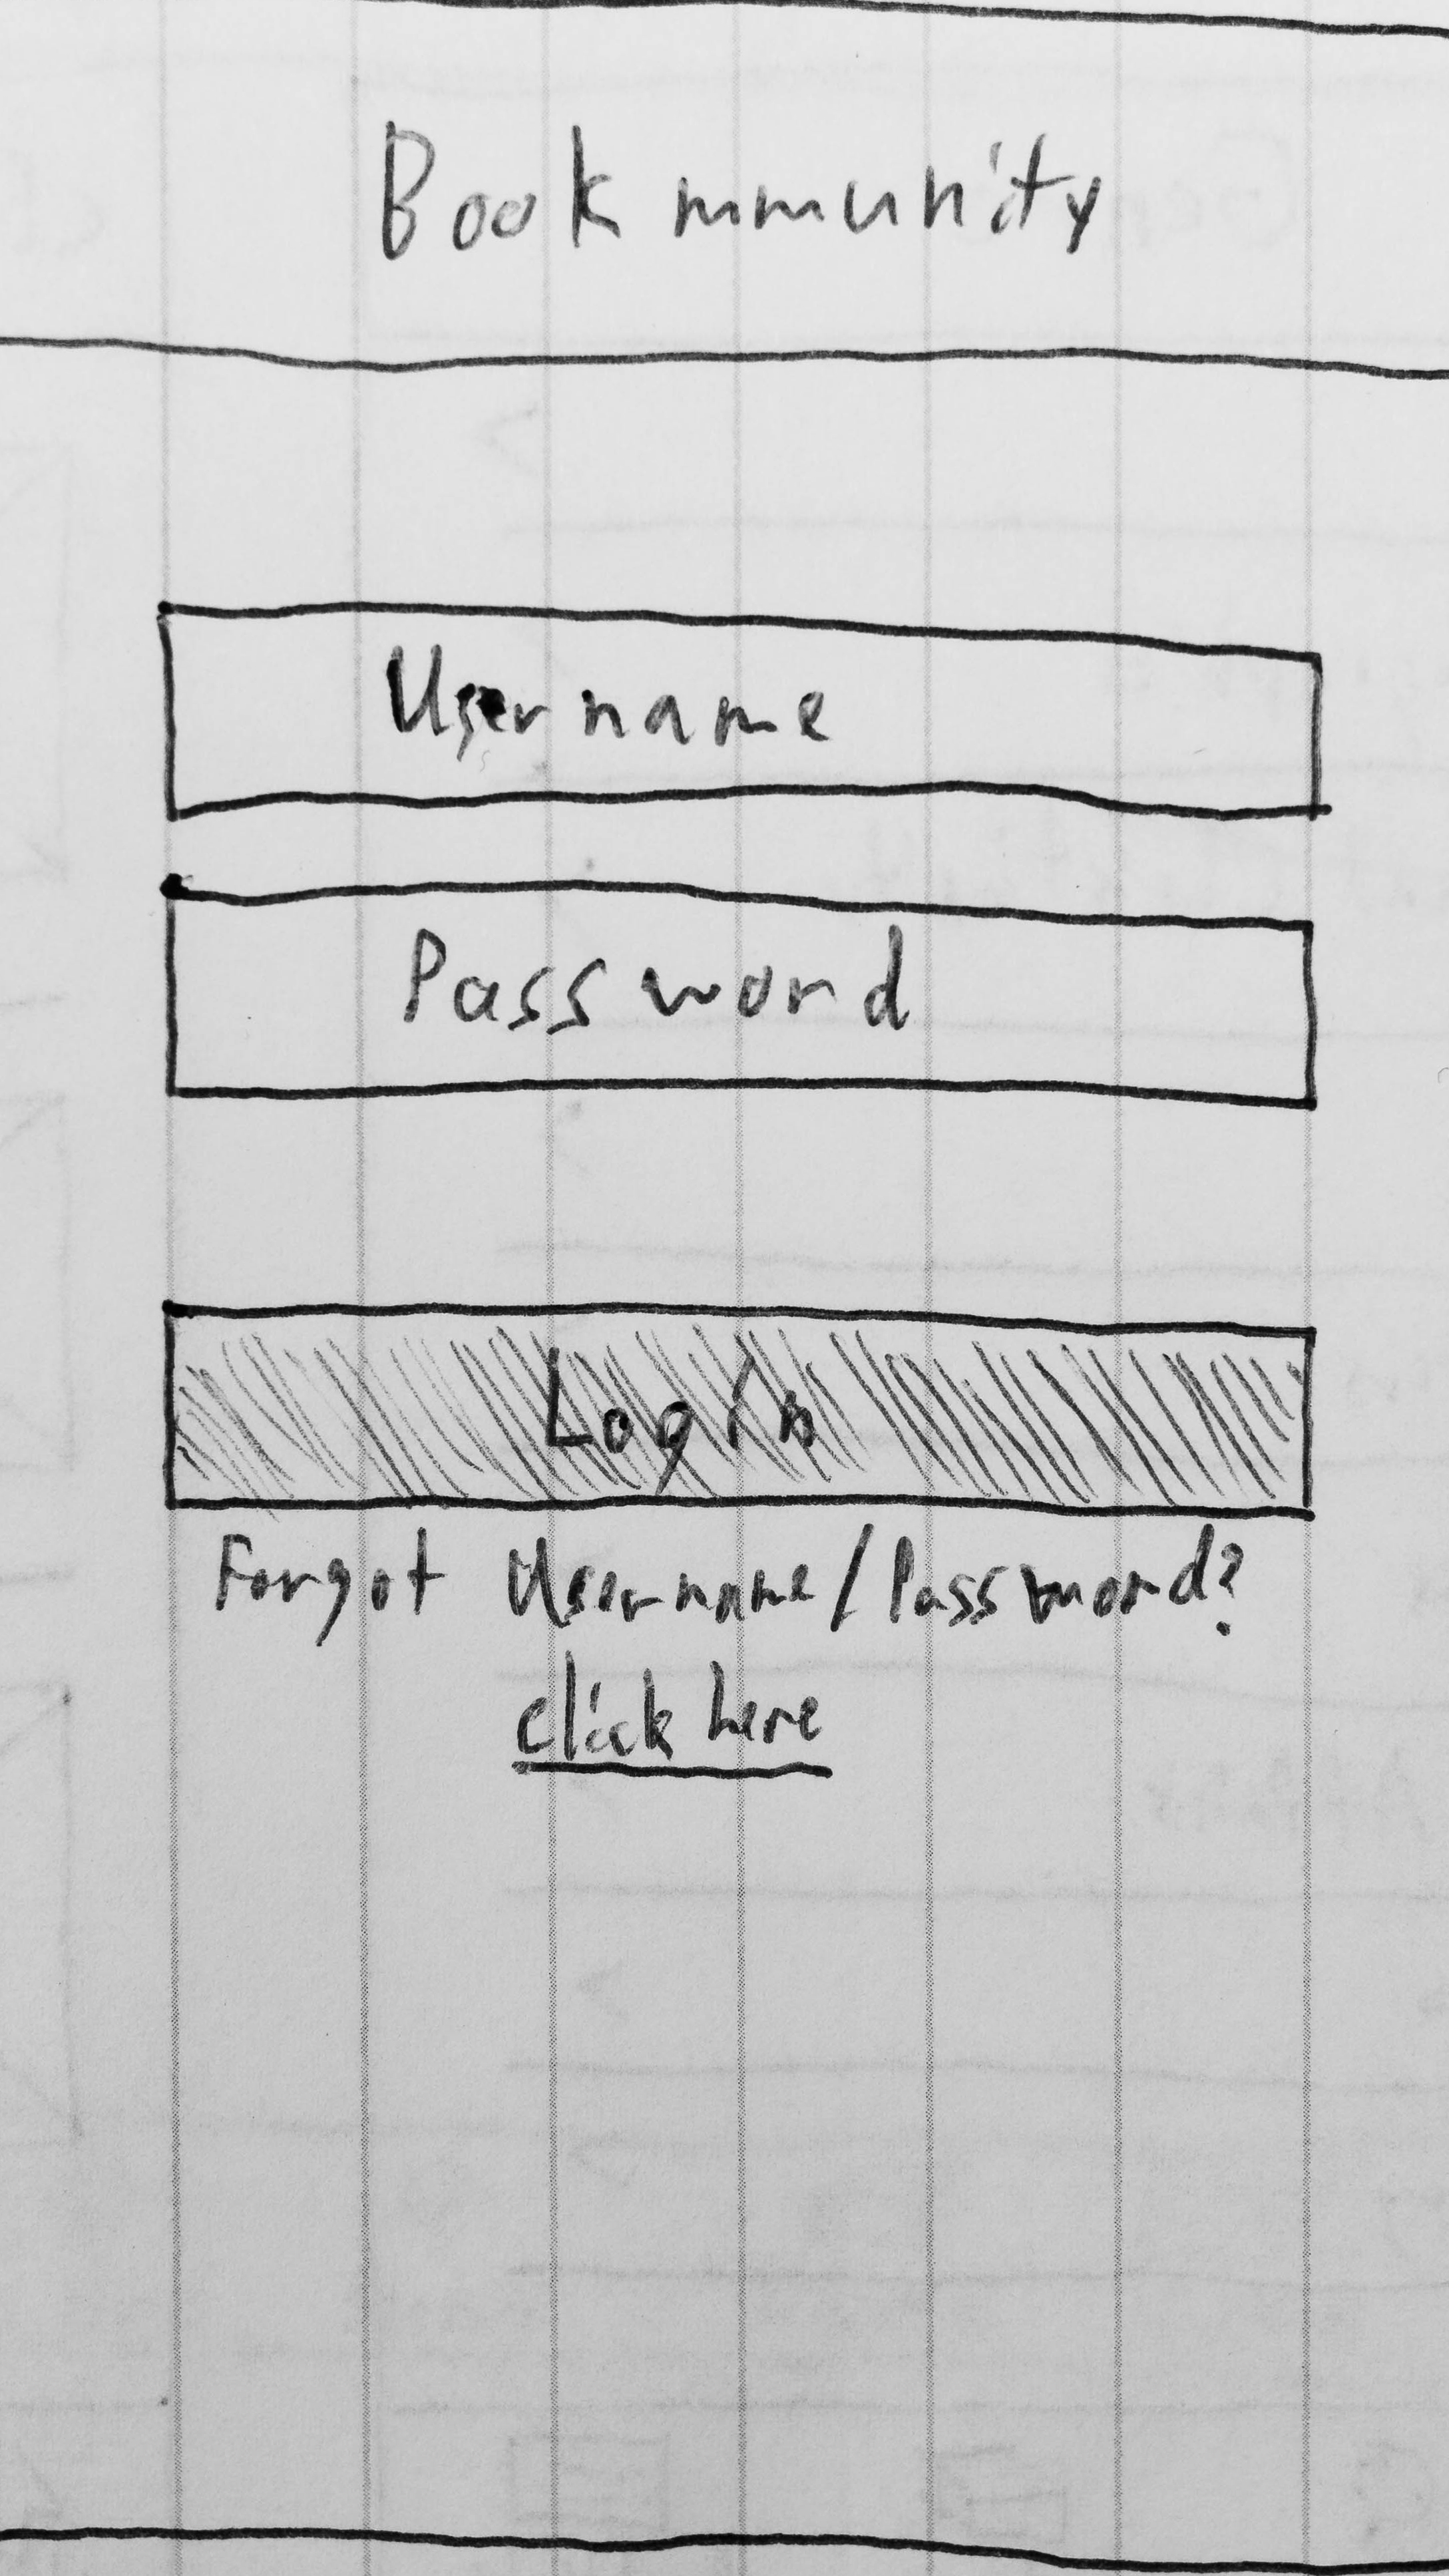 Bookmmunity
Username
Password
Login
Forgot Username/Password?
click here